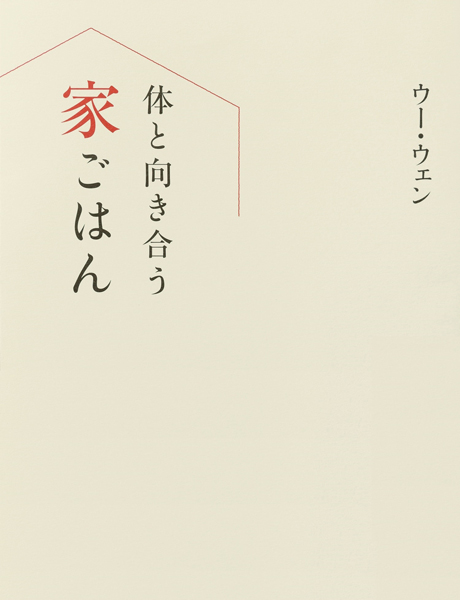 ウー・ウェン
体と向き合う
家ごはん